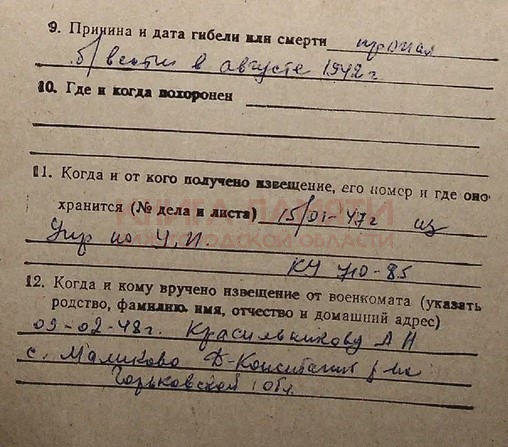 9. Причина и дата гибели или смерти пропал
б/вести в августе 1942 г
10. Где и когда похоронен
11. Когда и от кого получено извещение, его номер и где оно
хранится (№ дела и листа) 15/01-47 г из
Упр по У.П.
КУ 710-85
12. Когда и кому вручено извещение от военкомата (указать
родство, фамилию, имя, отчество и домашний адрес)
09-02-48 г. Красильникову А Н
с. Маликово Д-Константин р-на
Горьковской обл
КНИГА ПАМЯТИ
НИЖЕГОРОДСКОЙ ОБЛАСТИ